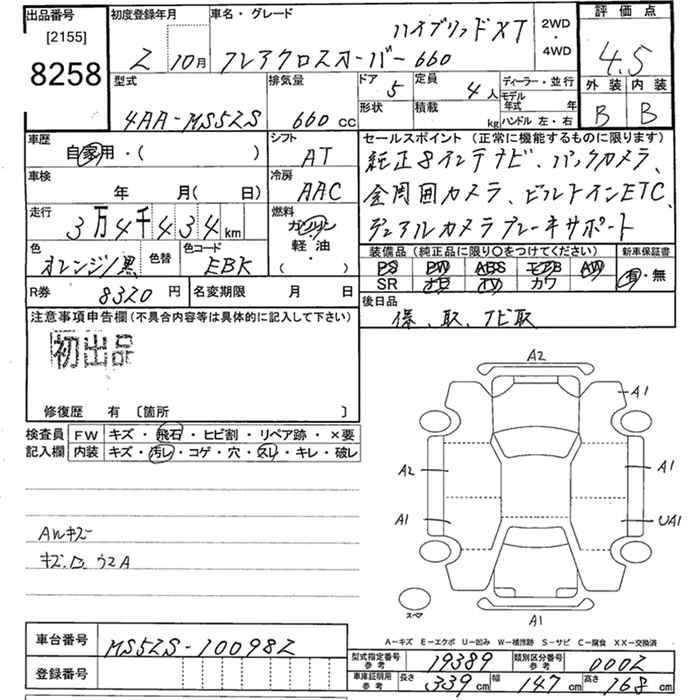 出品番号
[2155]
8258
初度登録年月
2 10月
車名・グレード
ハイブリッドXT
フレアクロスオーバー 660
2WD
・
4WD
評価点
4.5
外装 内装
B B
型式
4AA-MS52S
排気量
660 cc
ドア 5
形状
定員 4人
積載 kg
ディーラー・並行
モデル年式 年
ハンドル 左・右
車歴
自家用・( )
シフト
AT
セールスポイント (正常に機能するものに限ります)
純正8インチナビ、バックカメラ、
全周囲カメラ、ビルトインETC、
デュアルカメラブレーキサポート
車検
年 月( 日)
冷房
AAC
走行
3万4千434km
燃料
ガソリン
軽・油
( )
色
オレンジ/黒
色替
色コード
EBK
装備品 (純正品に限り○をつけてください)
PS PW ABS エアB AW
SR ナビ TV カワ
新車保証書
有・無
R券 8320円
名変期限 月 日
後日品
保、取、ナビ取
注意事項申告欄(不具合内容等は具体的に記入して下さい)
初出品
修復歴 有 〔箇所 〕
検査員
記入欄
FW キズ・飛石・ヒビ割・リペア跡・×要
内装 キズ・汚レ・コゲ・穴・スレ・キレ・破レ
AWキズ
A2
A1
A2
A1
A1
UA1
A1
スペア
A-キズ E-エクボ U-凹み W-補修跡 S-サビ C-腐食 XX-交換済
車台番号
MS52S-100982
登録番号
型式指定番号
参考
19389
類別区分番号
参考
0002
車庫証明用
参考
長さ 339cm 幅 147cm 高さ 168cm